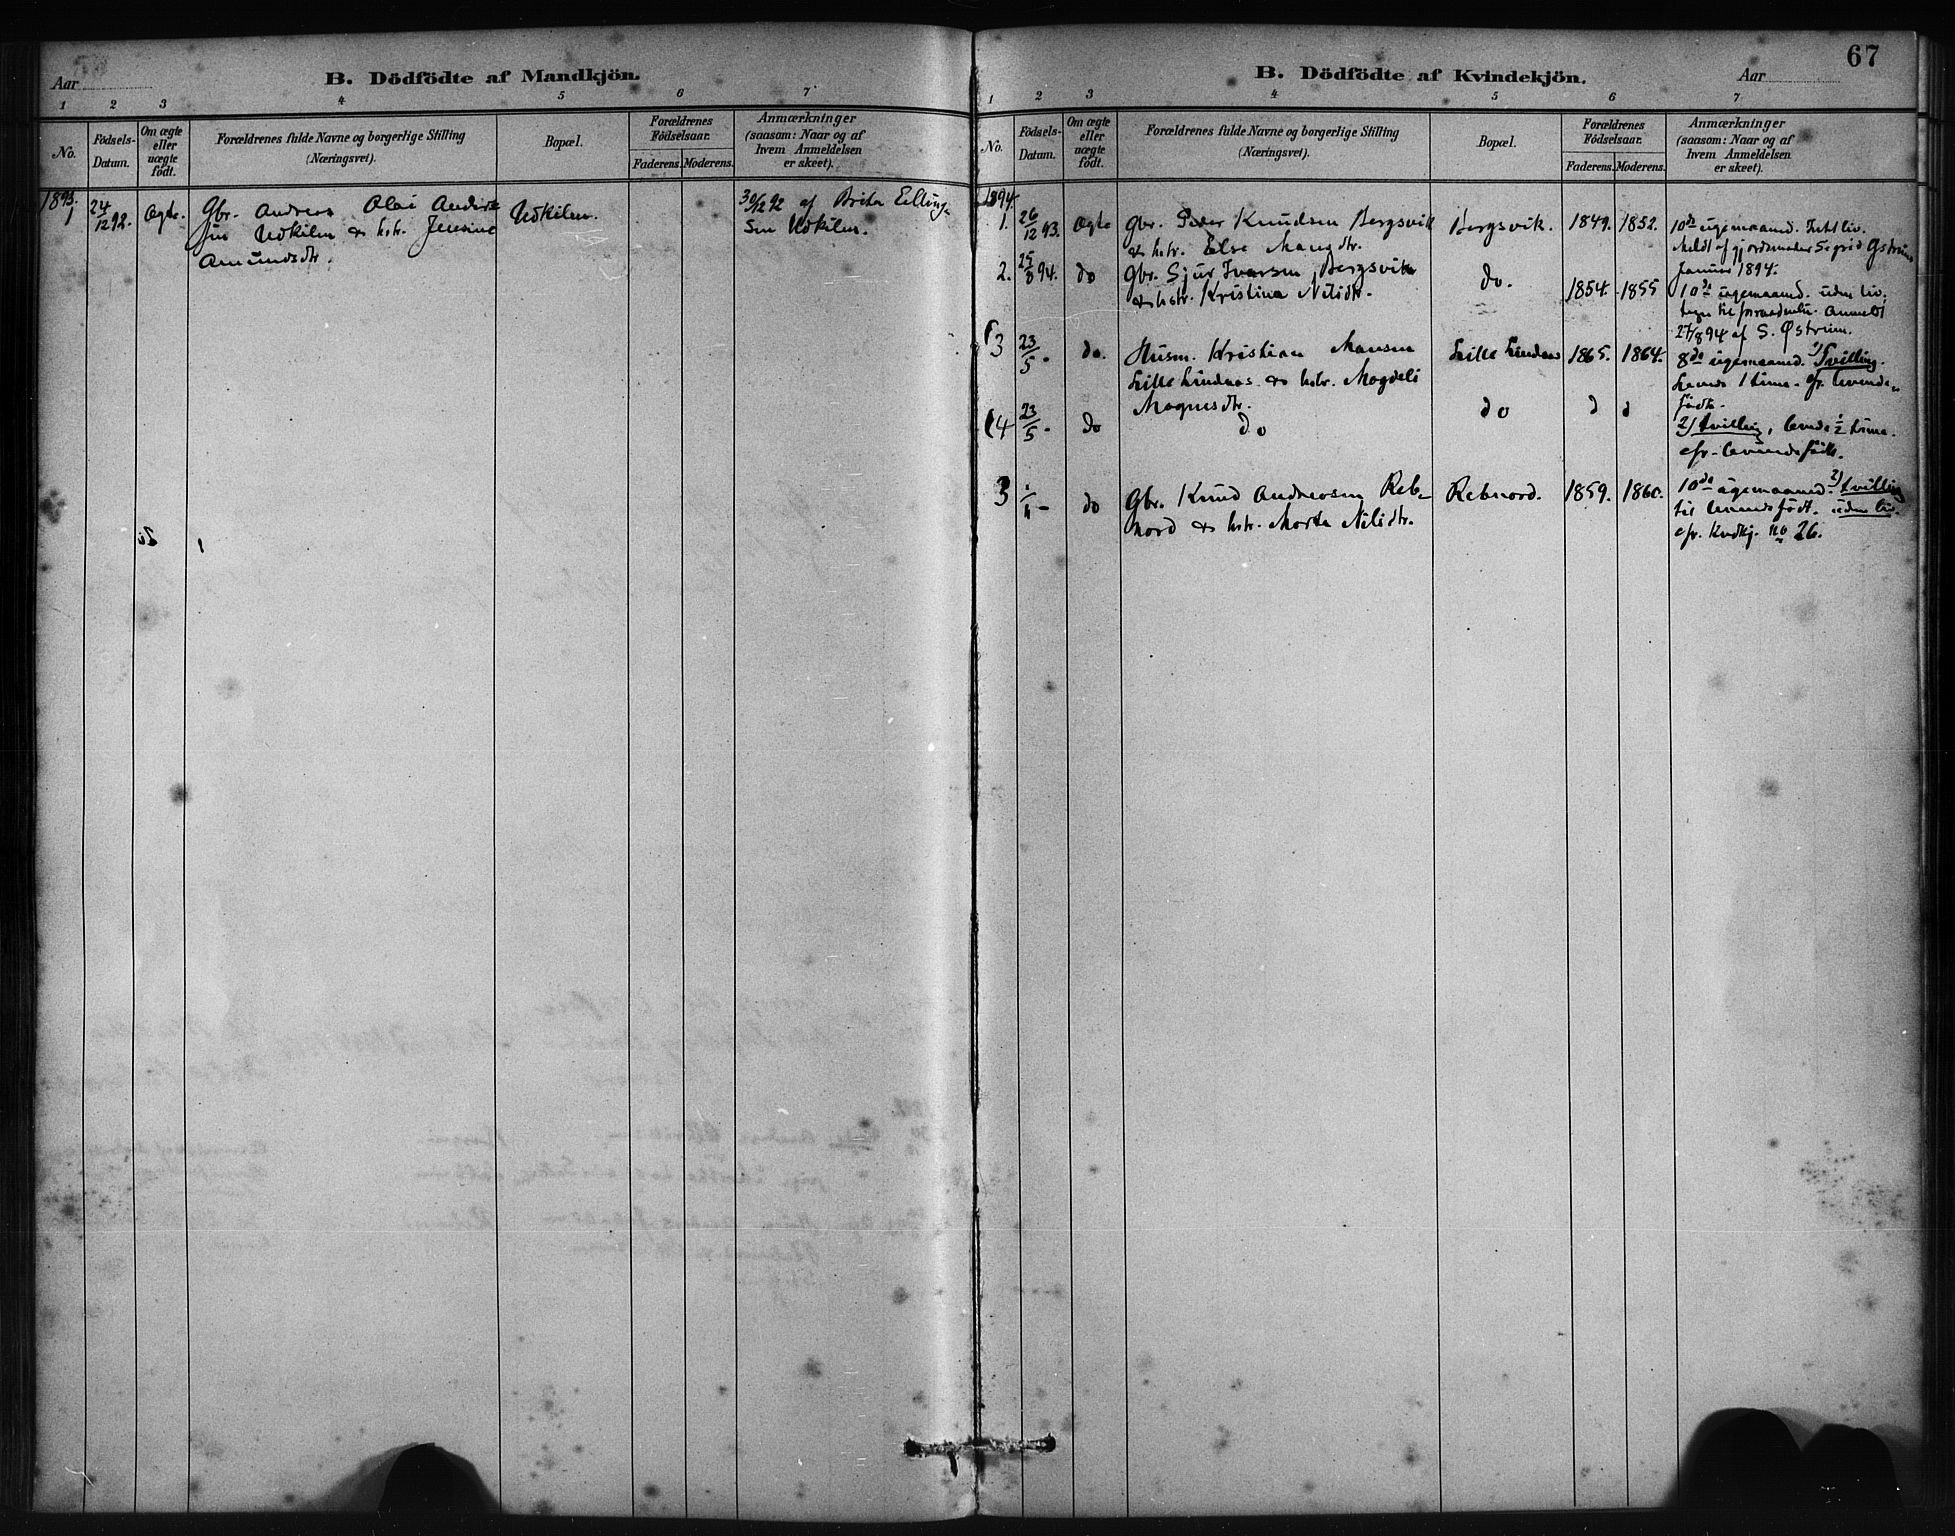 Aar
B. Dödfödte af Mandkjön.
1 2 3 4 5 6 7
No.
Födsels-
Datum.
Om ægte
eller
uægte
födt.
Forældrenes fulde Navne og borgerlige Stilling
(Næringsvei).
Bopæl.
Forældrenes
Födselsaar.
Faderens. Moderens.
Anmærkninger
(saasom: Naar og af
hvem Anmeldelsen
er skeet).
1893.
1
24/12 92.
Ægte.
Gbr. Andreas Olai Anders
sen Udkilen & hstr. Jensine
Amundsdtr.
Udkilen.
30/12 92 af Brita Elling-
sen Udkilen.
67
B. Dödfödte af Kvindekjön.
Aar
1 2 3 4 5 6 7
No.
Födsels-
Datum.
Om ægte
eller
uægte
födt.
Forældrenes fulde Navne og borgerlige Stilling
(Næringsvei).
Bopæl.
Forældrenes
Födselsaar.
Faderens. Moderens.
Anmærkninger
(saasom: Naar og af
hvem Anmeldelsen
er skeet).
1894.
1. 26/12 93. Ægte Gbr. Peder Knudsen Bergsvik
& hstr. Else Mangdtr.
Bergsvik. 1849. 1852.
10de ugemaaned. Intet liv.
Meldt af gjordemoder Sigrid Østrem
Januar 1894.
2. 25/8 94. do Gbr. Sjur Ivarsen Bergsvik
& hstr. Kristina Nilsdtr.
do. 1854. 1855
10de ugemaaned. uden liv.
tegn til forraadnelse. Anmeldt
27/8 94 af S. Østrem.
3 23/5 - do. Husm. Kristian Monsen
Lille Lindaas & hstr. Magdeli
Magnesdtr.
Lille Lindaas 1865. 1864.
8de ugemaaned. 1) Tvilling.
Levede 1 time. cfr. levende-
födte.
4 23/5 - do do
do d d
2) tvilling, levede 1/2 time.
cfr. levende födte.
3 1/11 - do Gbr. Knud Andreassen Reb-
nord & hstr. Marta Nilsdtr.
Rebnord. 1859. 1860.
10de ugemaaned. 2) tvilling
til levendefödt. uden liv.
cfr. Kvdkj. no 26.